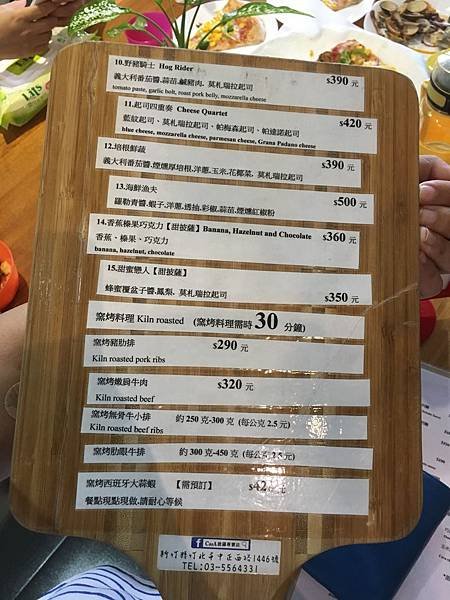 10.野豬騎士 Hog Rider
$390 元
義大利番茄醬,蒜苗,鹹豬肉, 莫札瑞拉起司
tomato paste, garlic bolt, roast pork belly, mozzarella cheese
11.起司四重奏 Cheese Quartet
$420 元
藍紋起司、莫札瑞拉起司、帕梅森起司、帕達諾起司
blue cheese, mozzarella cheese, parmesan cheese, Grana Padano cheese
12.培根鮮蔬
$390 元
義大利番茄醬,煙燻厚培根,洋蔥,玉米,花椰菜, 莫札瑞拉起司
13.海鮮漁夫
$500 元
羅勒青醬,蝦子,洋蔥,透抽,彩椒,蒜苗,煙燻紅椒粉
14.香蕉榛果巧克力【甜披薩】Banana, Hazelnut and Chocolate
$360 元
香蕉、榛果、巧克力
banana, hazelnut, chocolate
15.甜蜜戀人【甜披薩】
蜂蜜覆盆子醬,鳳梨, 莫札瑞拉起司
$350 元
窯烤料理 Kiln roasted (窯烤料理需時 30 分鐘)
窯烤豬肋排
$290 元
Kiln roasted pork ribs
窯烤嫩肩牛肉
$320 元
Kiln roasted beef
窯烤無骨牛小排 約 250 克-300 克 (每公克 2.5 元)
Kiln roasted beef ribs
窯烤肋眼牛排 約 300 克-450 克 (每公克 2.5 元)
窯烤西班牙大蒜蝦 【需預訂】 元
餐點現點現做,請耐心等候
TEL:03-5564331